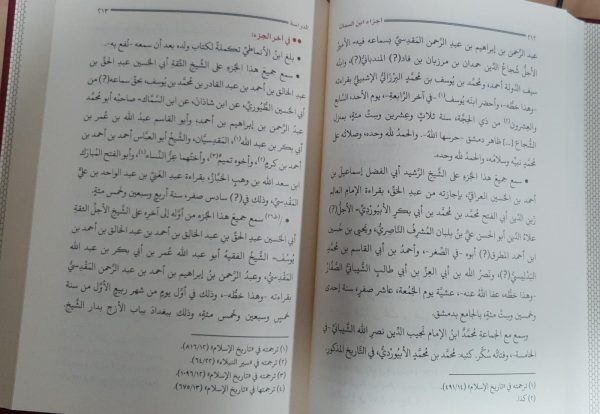 ٢١٢
أجزاء ابن السماك
عبد الرَّحمن بن إبراهيم بن عبد الرَّحمن المَقدِسيُّ بسماعه فيه، الأميرُ
الأجلُّ شجاعُ الدِّين حمدان بن مرزبان بن قاد(؟) الهندبانيُّ(؟)، وابنُه
سيف الدولة أحمد، ومحمَّد بن يوسف بن محمَّد البِرْزاليُّ الإشبيليُّ بقراءته
-وهذا خطُّه-، وأحضر ابنَه يوسف(١) -في آخر الرَّابعة-، يوم الأحد، السَّابع
والعشرون(٢) من ذي الحِجَّة، سنة ثلاث وعشرين وستِّ مئةٍ، بمنزل
الشُّجاع [...] ظاهر دمشق -حرسها الله-. والحمد لله وحده، وصلاتُه على
محمَّدٍ نبيِّه وسلامُه. والحمد لله وحده.
سمع جميعَ هذا الجُزء على الشَّيخ الرَّشيد أبي الفضل إسماعيل بن
أحمد بن الحسين العراقيِّ، بإجازته من عبد الحقِّ، بقراءة الإمام العالِم
زين الدِّين أبي الفتح محمَّد بن محمَّد بن أبي بكرٍ الأبِيْوَرْديِّ، الأجلُّ(؟)
علاءُ الدِّين أبو الحسن عليُّ بن بلبان المشرف النَّاصريُّ، ويحيى بن حسين
ابن أحمد المطرق(؟) أبوه -في الصَّغر-، وأحمدُ بن أبي القاسم بن محمَّدٍ
التدليسيُّ(؟)، ونصرُ الله بن أبي العزِّ بن أبي طالبٍ الشَّيبانيُّ الصَّفَّار
-وهذا خطُّه، عفا الله عنه-، عشيَّة يوم الجُمعة، عاشر صفر، سنة إحدى
وخمسين وستِّ مئةٍ، بالجامع بدمشق.
وسمع مع الجماعةِ محمَّدُ ابنُ الإمام نجيب الدِّين نصر الله الشَّيبانيُّ -في
الخامسة-، وفتاه سُنْقُر. كتبه: محمَّد بن محمَّدٍ الأبِيْوَرْديُّ، في التَّاريخ المذكور.
(١) ترجمته في «تاريخ الإسلام» (٤٩١/١٤).
(٢) كذا.
الدراسة
٢١٣
•• في آخر الجزء:
• بلغ ابنُ الأنماطيِّ تكملةً لكتاب ولده بعد أن سمعه -نُفع به-.
• سمع جميعَ هذا الجُزء على الشَّيخ الثِّقة أبي الحسين عبد الحقِّ بن
عبد الخالق بن أحمد بن عبد القادر بن محمَّد بن يوسف، بحقِّ سماعه(؟) من
أبي الحسين الطُّيُوريِّ، عن ابن شاذان، عن ابن السَّمَّاك، صاحبُه أبو محمَّد
عبدُ الرَّحمن بن إبراهيم بن أحمد، وأبو القاسم عبدُ الله بن عُمر بن
أبي بكر بن عبد الله(١)، المَقدِسيَّان، والشَّيخُ أبو العبَّاس أحمد بن أحمد بن
أحمد بن كرم(٢)، وأخوه تميم(٣)، وأختُهما عزُّ النِّساء(٤)، وأبو الفتح المبارك
ابن سعد الله بن وهبٍ الخبَّازُ، بقراءة عبد الغنيِّ بن عبد الواحد بن عليٍّ
المَقدِسيِّ، وذلك في(؟) سادس صفر، سنة أربع وسبعين وخمس مئةٍ.
• (٢١٨ظ) سمع جميعَ هذا الجُزء من أوَّله إلى آخره على الشَّيخ الأجلِّ الثِّقة
أبي الحسين عبد الحقِّ بن عبد الخالق بن أحمد بن عبد القادر بن أحمد بن
يوسف- الشَّيخُ الفقيه أبو عبد الله عُمر بن أبي بكر بن عبد الله
المَقدِسيُّ، وعبدُ الرَّحمن بن إبراهيم بن أحمد بن عبد الرَّحمن المَقدِسيُّ
بقراءته -وهذا خطُّه-، وذلك في أوَّل يومٍ من شهر ربيع الأوَّل من سنة
خمسٍ وسبعين وخمس مئةٍ، وذلك ببغداد بباب الأزج بدار الشَّيخ.
(١) ترجمته في «تاريخ الإسلام» (٨١٦/١٢).
(٢) ترجمته في «سير النبلاء» (٦٤/٢٢).
(٣) ترجمته في «تاريخ الإسلام» (١٠٩٦/١٢).
(٤) ترجمتها في «تاريخ الإسلام» (٦٧٥/١٣).